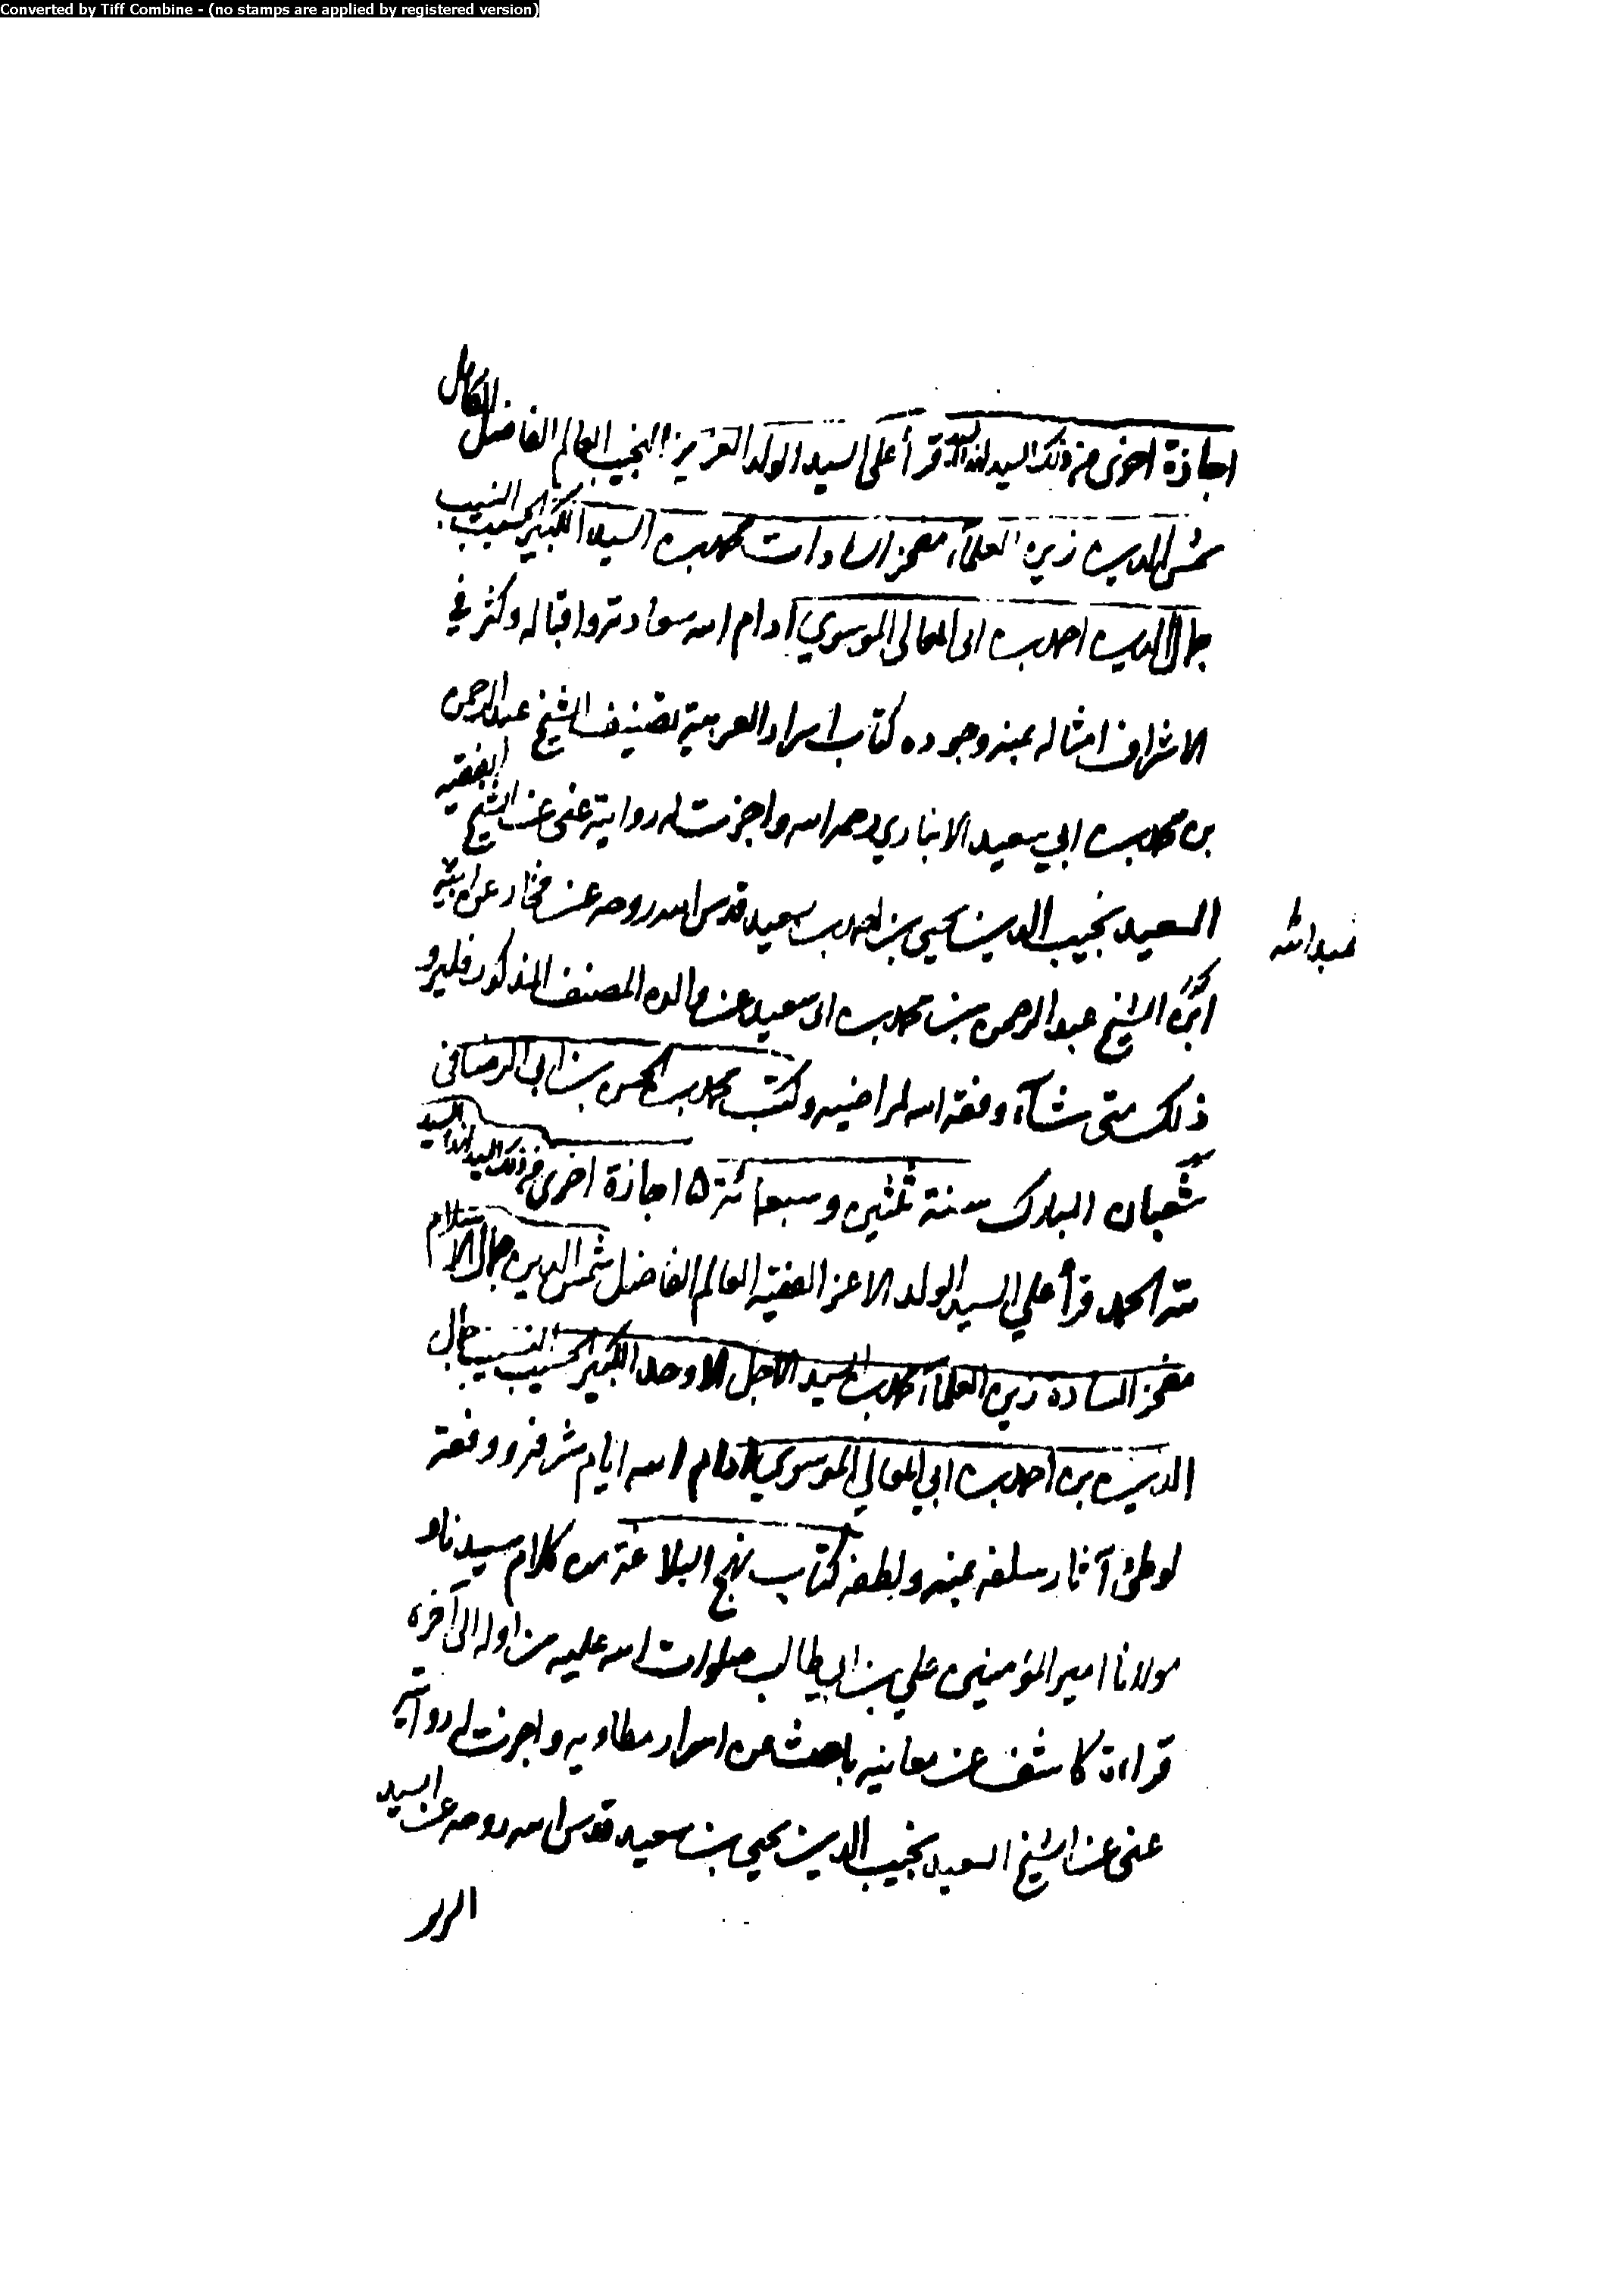 Converted by Tiff Combine - (no stamps are applied by registered version)
اجازة اخرى من ذلك السيد لهذا السيد قرأ علي السيد الولد العزيز النجيب العالم الفاضل الكامل
شمس الدين زين العلماء مفخر السادات محمد بن السيد الكبير الحسيب النسيب
جمال الدين احمد بن ابى المعالى الموسوي ادام الله سعادته واقباله وكثر في
الاشراف امثاله بمنه وجوده كتاب اسرار العربية تصنيف الشيخ عبد الرحمن
بن محمد بن ابي سعيد الانباري رحمه الله واجزت له روايته عنى عن الشيخ الفقيه
السعيد نجيب الدين يحيى بن احمد بن سعيد قدس الله روحه عن
عبد الله
الشيخ عبد الرحمن بن محمد بن ابى سعيد عن والده المصنف المذكور فليرو
ذلك متى شآء وفقه الله لمراضيه وكتب محمد بن الحسن بن ابى الرضا فى
شعبان المبارك سنة ثلثين وسبعمائة ۵ اجازة اخرى من ذلك السيد لهذا السيد
لله الحمد قرأ علي السيد الولد الاعز الفقيه العالم الفاضل شمس الدين جمال الاسلام
مفخر السادة زين العلماء محمد بن السيد الاجل الاوحد الكبير الحسيب النسيب جمال
الدين بن احمد بن ابي المعالي الموسوي ادام الله ايام شرفه ووفقه
لوطئ آثار سلفه بمنه ولطفه كتاب نهج البلاغة من كلام سيدنا و
مولانا امير المؤمنين علي بن ابيطالب صلوات الله عليه من اوله الى آخره
قراءة كاشف عن معانيه باحث عن اسرار مطاويه واجزت له روايته
عنى عن الشيخ السعيد نجيب الدين يحيى بن سعيد قدس الله روحه عن السيد